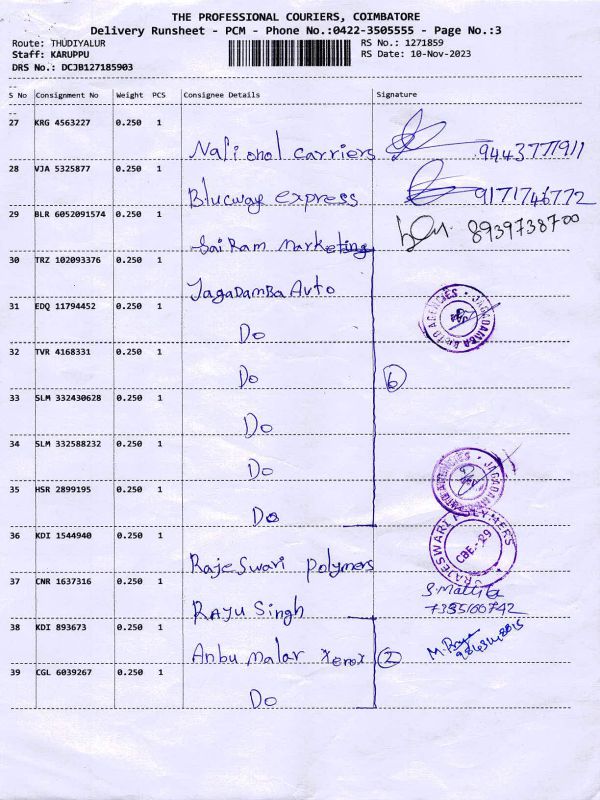 THE PROFESSIONAL COURIERS, COIMBATORE
Delivery Runsheet - PCM - Phone No.:0422-3505555 - Page No.:3
Route: THUDIYALUR RS No.: 1271859
Staff: KARUPPU RS Date: 10-Nov-2023
DRS No.: DCJB127185903
S No Consignment No Weight PCS Consignee Details Signature
27 KRG 4563227 0.250 1
National carriers 9443777911
28 VJA 5325877 0.250 1
Blueway express 9171746772
29 BLR 6052091574 0.250 1 8939738700
Sai Ram marketing
30 TRZ 102093376 0.250 1
JagaDamBa Auto
31 EDQ 11794452 0.250 1
Do
JAGADAMBA AUTO AGENCIES
32 TVR 4168331 0.250 1
Do 6
33 SLM 332430628 0.250 1
Do
34 SLM 332588232 0.250 1
Do
JAGADAMBA AUTO AGENCIES
35 HSR 2899195 0.250 1
Do
36 KDI 1544940 0.250 1
RajeSwari Polymers
RAJESWARI POLYMERS
CBE.-29
37 CNR 1637316 0.250 1
RAYU Singh
38 KDI 893673 0.250 1
Anbu malar xerox 2
39 CGL 6039267 0.250 1
Do